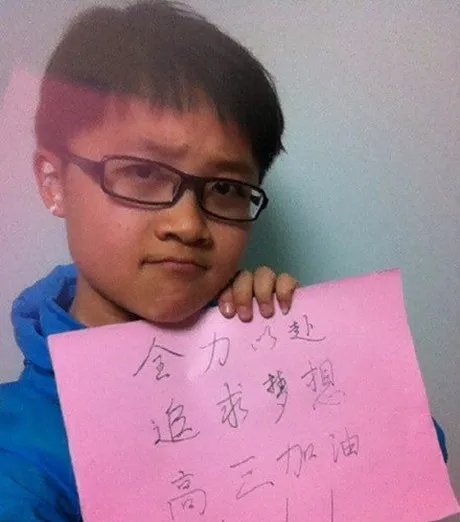 全力以赴
追求梦想
高三加油